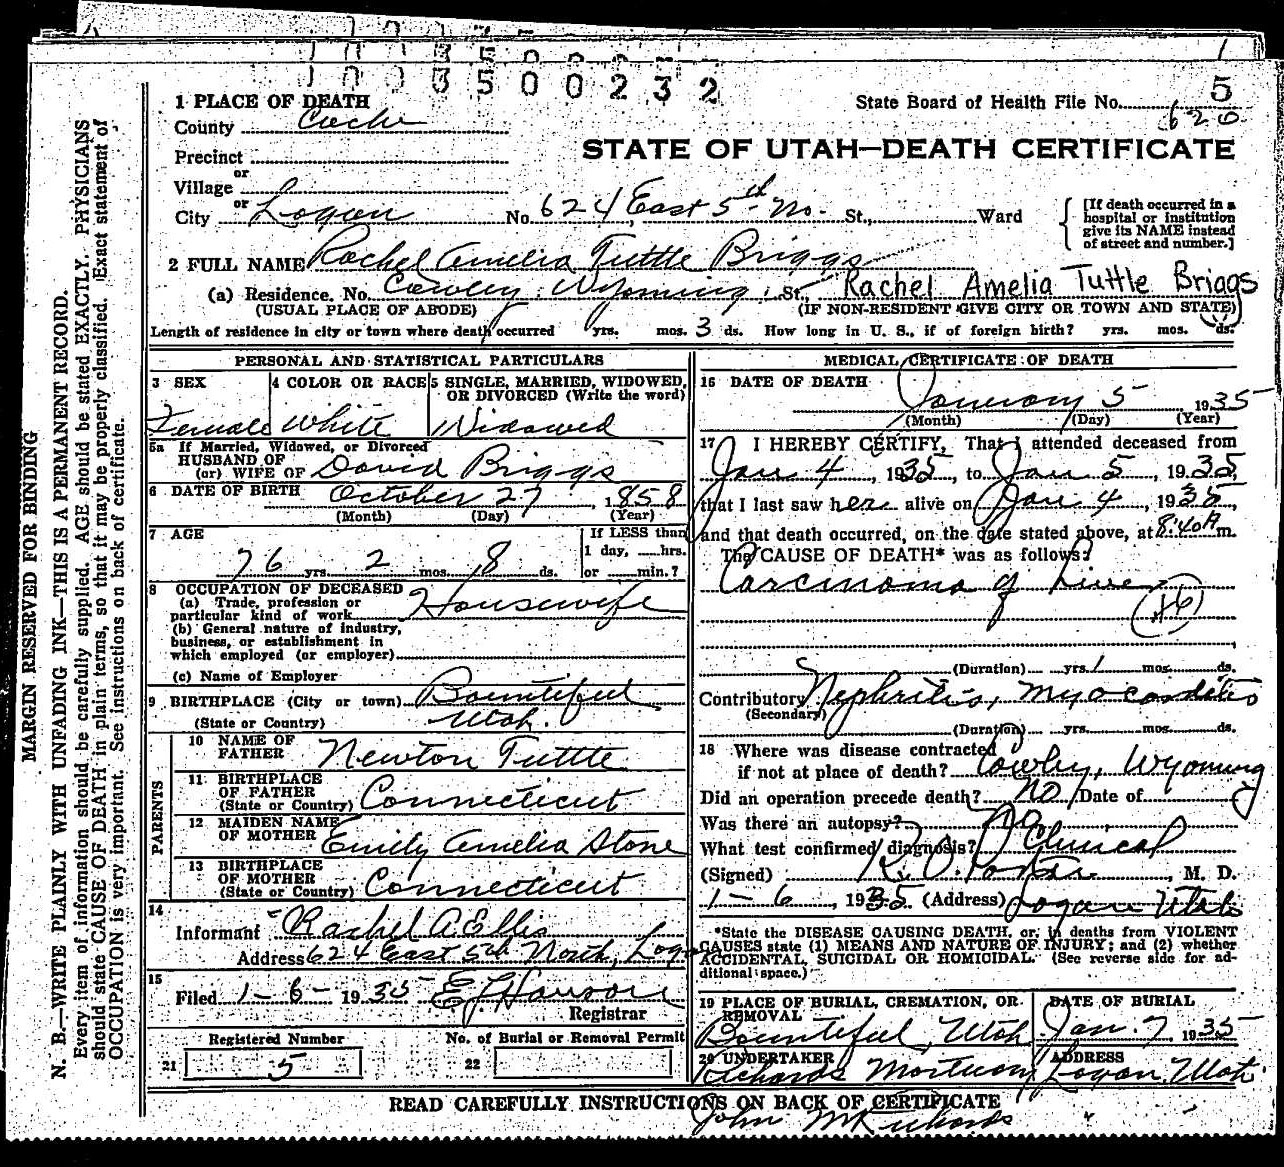 1003500232
5
1 PLACE OF DEATH
State Board of Health File No.
County Cache
626
Precinct
STATE OF UTAH—DEATH CERTIFICATE
or
Village
or
City Logan No. 624 East 5th No. St., Ward
[If death occurred in a hospital or institution give its NAME instead of street and number.]
2 FULL NAME Rachel Amelia Tuttle Briggs
(a) Residence. No. Cowley, Wyoming, St., Rachel Amelia Tuttle Briggs
(USUAL PLACE OF ABODE) (IF NON-RESIDENT GIVE CITY OR TOWN AND STATE)
Length of residence in city or town where death occurred yrs. mos. 3 ds. How long in U. S., if of foreign birth? yrs. mos. ds.
PERSONAL AND STATISTICAL PARTICULARS
3 SEX 4 COLOR OR RACE 5 SINGLE, MARRIED, WIDOWED, OR DIVORCED (Write the word)
Female White Widowed
5a If Married, Widowed, or Divorced
HUSBAND OF
(or) WIFE OF David Briggs
6 DATE OF BIRTH October 27, 1858
(Month) (Day) (Year)
7 AGE If LESS than
1 day, hrs.
76 yrs. 2 mos. 8 ds. or min.?
8 OCCUPATION OF DECEASED
(a) Trade, profession or
particular kind of work Housewife
(b) General nature of industry,
business, or establishment in
which employed (or employer)
(c) Name of Employer
9 BIRTHPLACE (City or town) Bountiful
(State or Country) Utah.
PARENTS
10 NAME OF
FATHER Newton Tuttle
11 BIRTHPLACE
OF FATHER
(State or Country) Connecticut
12 MAIDEN NAME
OF MOTHER Emily Amelia Stone
13 BIRTHPLACE
OF MOTHER
(State or Country) Connecticut
14
Informant Rachel A Ellis
Address 624 East 5th North, Logan
15
Filed 1-6- 1935 E J Hanson
Registrar
Registered Number No. of Burial or Removal Permit
21 5 22
MEDICAL CERTIFICATE OF DEATH
16 DATE OF DEATH
January 5 1935
(Month) (Day) (Year)
17 I HEREBY CERTIFY, That I attended deceased from
Jan 4, 1935, to Jan 5, 1935,
that I last saw her alive on Jan 4, 1935,
and that death occurred, on the date stated above, at 8:40 A m.
The CAUSE OF DEATH* was as follows:
Carcinoma of Liver
(46)
(Duration) yrs. 1 mos. ds.
Contributory Nephritis, Myocarditis
(Secondary)
(Duration) yrs. mos. ds.
18 Where was disease contracted
if not at place of death? Cowley, Wyoming
Did an operation precede death? No Date of
Was there an autopsy? No
What test confirmed diagnosis? Clinical
(Signed) R. O. Porter, M. D.
1-6, 1935 (Address) Logan Utah
*State the DISEASE CAUSING DEATH, or, in deaths from VIOLENT
CAUSES state (1) MEANS AND NATURE OF INJURY; and (2) whether
ACCIDENTAL, SUICIDAL OR HOMICIDAL. (See reverse side for ad-
ditional space.)
19 PLACE OF BURIAL, CREMATION, OR REMOVAL DATE OF BURIAL
Bountiful, Utah Jan. 7, 1935
20 UNDERTAKER ADDRESS
Richards Mortuary Logan, Utah
READ CAREFULLY INSTRUCTIONS ON BACK OF CERTIFICATE
John M Richards
MARGIN RESERVED FOR BINDING
N. B.—WRITE PLAINLY WITH UNFADING INK—THIS IS A PERMANENT RECORD.
Every item of information should be carefully supplied. AGE should be stated EXACTLY. PHYSICIANS
should state CAUSE OF DEATH in plain terms, so that it may be properly classified. Exact statement of
OCCUPATION is very important. See instructions on back of certificate.